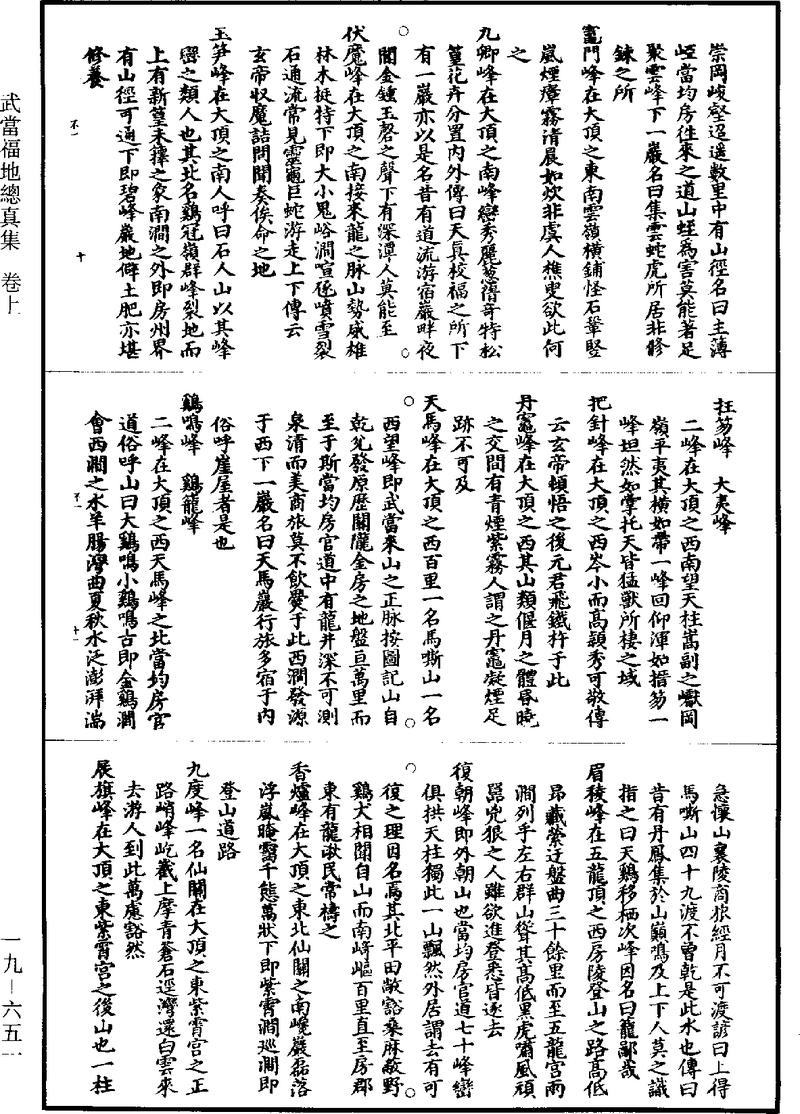 武當福地總真集 卷上
崇岡峻壑迢遥數里中有山徑名曰主薄
峌當均房徃來之道山蛭爲害莫能著足
聚雲峰下一巖名曰集雲蛇虎所居非修
鍊之所
竈門峰在大頂之東南雲嶺橫鋪怪石鞏竪
嵐煙瘴霧清晨如炊非虞人樵叟欲此何
之
九卿峰在大頂之南峰巒秀麗葱蒨奇特松
篁花卉分置内外傳曰天真校福之所下
有一巖亦以是名昔有道流游宿巖畔夜
聞金鍾玉磬之聲下有深潭人莫能至
伏魔峰在大頂之南接來龍之脉山勢威雄
林木挺特下即大小鬼峪澗喧豗噴雪裂
石通流常見靈龜巨蛇游走上下傳云
玄帝収魔詰問聞奏俟命之地
玉笋峰在大頂之南人呼曰石人山以其峰
巒之類人也其北名鷄冠嶺群峰裂地而
上有新篁未籜之象南澗之外即房州界
有山徑可通下即碧峰巖地僻土肥亦堪
修養
不一
十
拄笏峰 大夷峰
二峰在大頂之西南望天柱嵩副之巘岡
嶺平夷其橫如帶一峰回仰渾如搢笏一
峰坦然如掌托天皆猛獸所棲之域
把針峰在大頂之西岑小而高穎秀可敬傳
云玄帝頓悟之後元君飛鐵杵于此
丹竈峰在大頂之西其山類偃月之體昏曉
之交間有青煙紫霧人謂之丹竈凝煙足
跡不可及
天馬峰在大頂之西百里一名馬嘶山一名
西望峰即武當來山之正脉按圖記山自
乾兊發原歷關隴金房之地盤亘萬里而
至于斯當均房官道中有龍井深不可測
泉清而美商旅莫不飲爨于此西澗發源
于西下一巖名曰天馬巖行旅多宿于内
俗呼崖屋者是也
鷄鳴峰 鷄籠峰
二峰在大頂之西天馬峰之北當均房官
道俗呼山曰大鷄鳴小鷄鳴古即金鷄澗
會西澗之水羊腸灣曲夏秋水泛澎湃湍
不一
十一
急懷山襄陵商旅經月不可渡諺曰上得
馬嘶山四十九渡不曾乾是此水也傳曰
昔有丹鳳集於山巔鳴及上下人莫之識
指之曰天鷄移栖次峰因名曰籠鄙哉
眉稜峰在五龍頂之西房陵登山之路高低
昻藏縈迂盤曲三十餘里而至五龍宫兩
澗列乎左右群山聳其高低黒虎嘯風頑
嚚兇狠之人雖欲進登悉皆逐去
復朝峰即外朝山也當均房官道七十峰巒
俱拱天柱獨此一山飄然外居謂去有可
復之理因名焉其北平田敞豁桑麻敝野
鷄犬相聞自山而南崎嶇百里直至房郡
東有龍湫民常禱之
香爐峰在大頂之東北仙關之南巉巖磊落
浮嵐晻靄千態萬狀下即紫霄澗巡澗即
登山道路
九度峰一名仙關在大頂之東紫霄宫之正
路峭峰屹巀上摩青蒼石逕灣還白雲來
去游人到此萬慮豁然
展旗峰在大頂之東紫霄宫之後山也一柱
一九－六五一